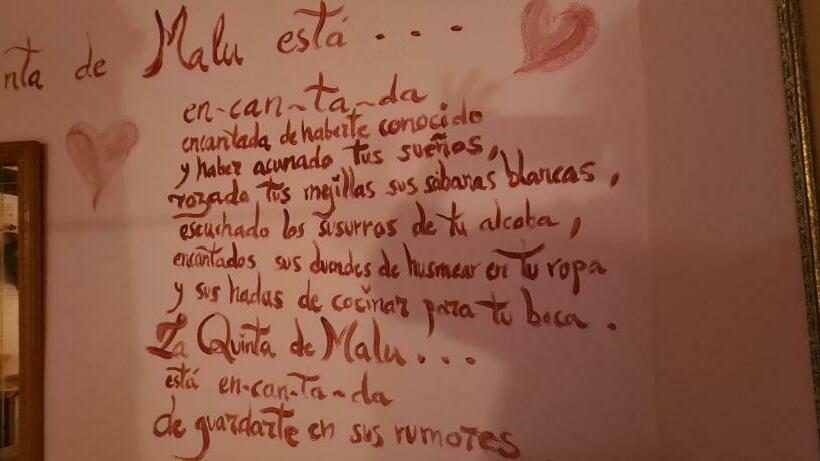 nta de Malu está . . .
en-can-ta-da
encantada de haberte conocido
y haber acunado tus sueños,
rozado tus mejillas sus sábanas blancas,
escuchado los susurros de tu alcoba,
encantados sus duendes de husmear en tu ropa
y sus hadas de cocinar para tu boca.
La Quinta de Malu . . .
está en-can-ta-da
de guardarte en sus rumores